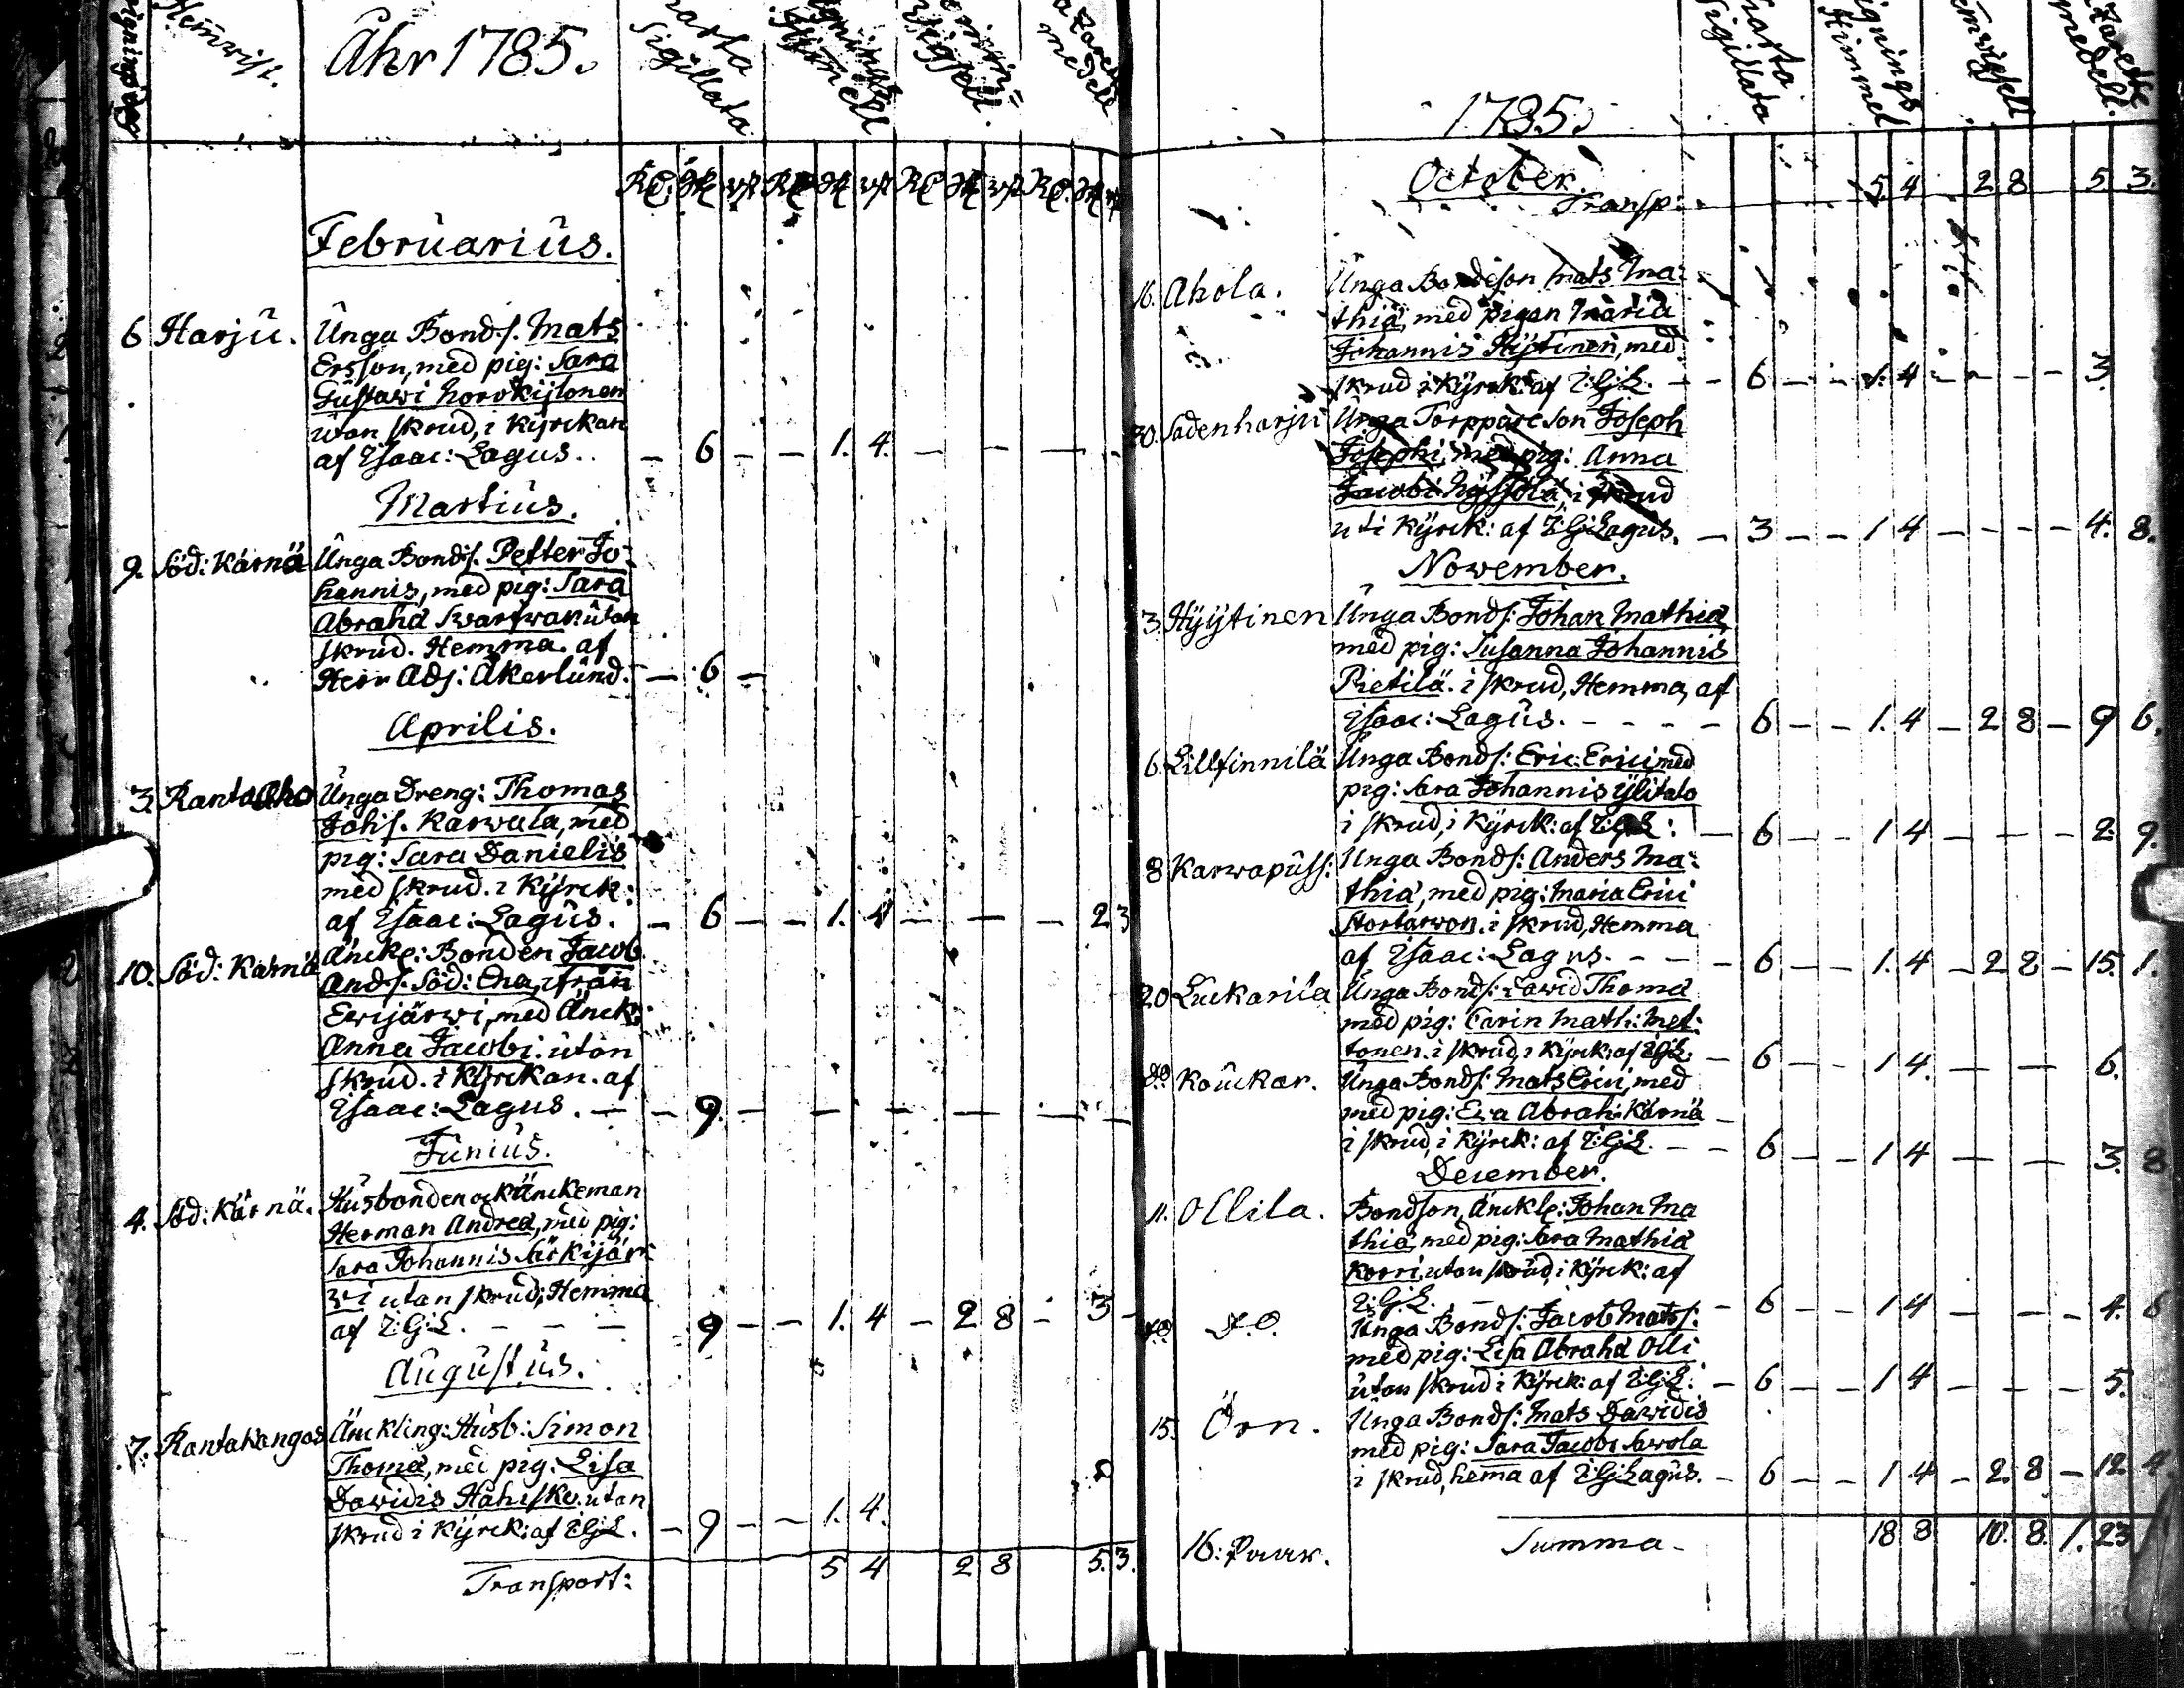 Hemwist.
Åhr 1785.
Charta Sigillata
Wignings Himmell
Hemwigsell.
Lazaretts medell
Rd. Sk. rst. Rd. Sk. rst. Rd. Sk. rst. Rd. Sk. rst.
Februarius.
6 Harju. Unga Bonds. Mats
Ersson, med pig: Sara
Gustawi
utan skrud, i Kyrckan
af Isaac: Lagus. - 6 - - 1. 4. - - -
Martius.
9. Söd: Kärnä Unga Bonds. Petter Jo-
hannis, med pig: Sara
Abrahā Swartwar utan
skrud. Hemma. af
Herr Adj: Åkerlund. - 6 -
Aprilis.
3. Ranta Aho Unga Dreng: Thomas
Johs. Karwala, med
pig: Sara Danielis
med skrud. i Kyrck:
af Isaac: Lagus. - 6 - - 1. 4 - - - 2 3
10. Söd: Kärnä Änckl: Bonden Jacob
Ands. Söd: Ena, ifrån
Ewijärwi, med Änck:
Anna Jacobi. utan
skrud. i Kyrckan. af
Isaac: Lagus. - - 9. - - - - - -
Junius.
4. Söd: Kärnä. Husbonden och Änckeman
Herman Andreä, med pig:
Sara Johannis Särkijär-
wi utan skrud; Hemma
af I:G:L. - - - 9 - - 1. 4 - 2 8 - 3 -
Augustus.
7. Rantakangas Änckling: Husb: Simon
Thomā, med pig: Lisa
Dawidis Hahisko. utan
skrud i Kyrck: af I:G:L. - 9 - - 1. 4.
Transport: 5 4 2 8 5. 3.
1785.
Charta Sigillata
Wignings Himmel
Hemwigsell
Lazaretts medell.
October.
Transp: 5 4 2 8 5 3.
16. Ahola. Unga Bondeson Mats Ma-
thiä, med pigan Maria
Johannis Hytinen, med
skrud i Kyrck: af I:G:L. - - 6 - - 1. 4 - - - - 3.
30. Sadenharju Unga Torppare Son Joseph
Josephi, med pig: Anna
Jacobi i skrud
uti Kyrck: af I:G:Lagus. - 3 - - 1 4 - - - - 4. 8.
November.
3. Hyytinen Unga Bonds: Johan Mathiā
med pig: Susanna Johannis
Pietilä. i skrud, Hemma, af
Isaac: Lagus. - - - - 6 - - 1. 4 - 2 8 - 9 6.
6. Lillfinnilä Unga Bonds: Eric Erici med
pig: Sara Johannis Ylitalo
i skrud, i Kyrck: af I:G:L: - 6 - - 1 4 - - - 2. 9.
8 Karwapuss: Unga Bonds: Anders Ma-
thiä, med pig: Maria Erici
i skrud, Hemma
af Isaac: Lagus. - - - 6 - - 1. 4 - 2 8 - 15. 1.
20 Luckarila Unga Bonds: Dawid Thomā
med pig: Carin Math: Met-
tonen. i skrud, i Kyrck: af I:G:L. - 6 - - 1 4. - - - 6.
do Kouckar. Unga Bonds: Mats Erici, med
med pig: Eva Abrah: Kärnä
i skrud, i Kyrck: af I:G:L. - - 6 - - 1 4 - - - 3. 8
December.
11. Ollila. Bondson, Änckl: Johan Ma
thiä, med pig: Sara Mathiā
Korri, utan skrud, i Kyrck: af
I:G:L. - 6 - - 1 4 - - - 4. 6
do d.o. Unga Bonds: Jacob Mats:
med pig: Lisa Abrahā Olli
utan skrud i Kyrck: af I:G:L. - 6 - - 1 4 - - - 5.
15. Örn. Unga Bonds: Mats Dawidis
med pig: Sara Jacobi Sawola
i skrud, hema af I:G:Lagus. - 6 - - 1 4 - 2. 8 - 12. 4
16: Paar. Summa. 18 8 10. 8. 1. 23